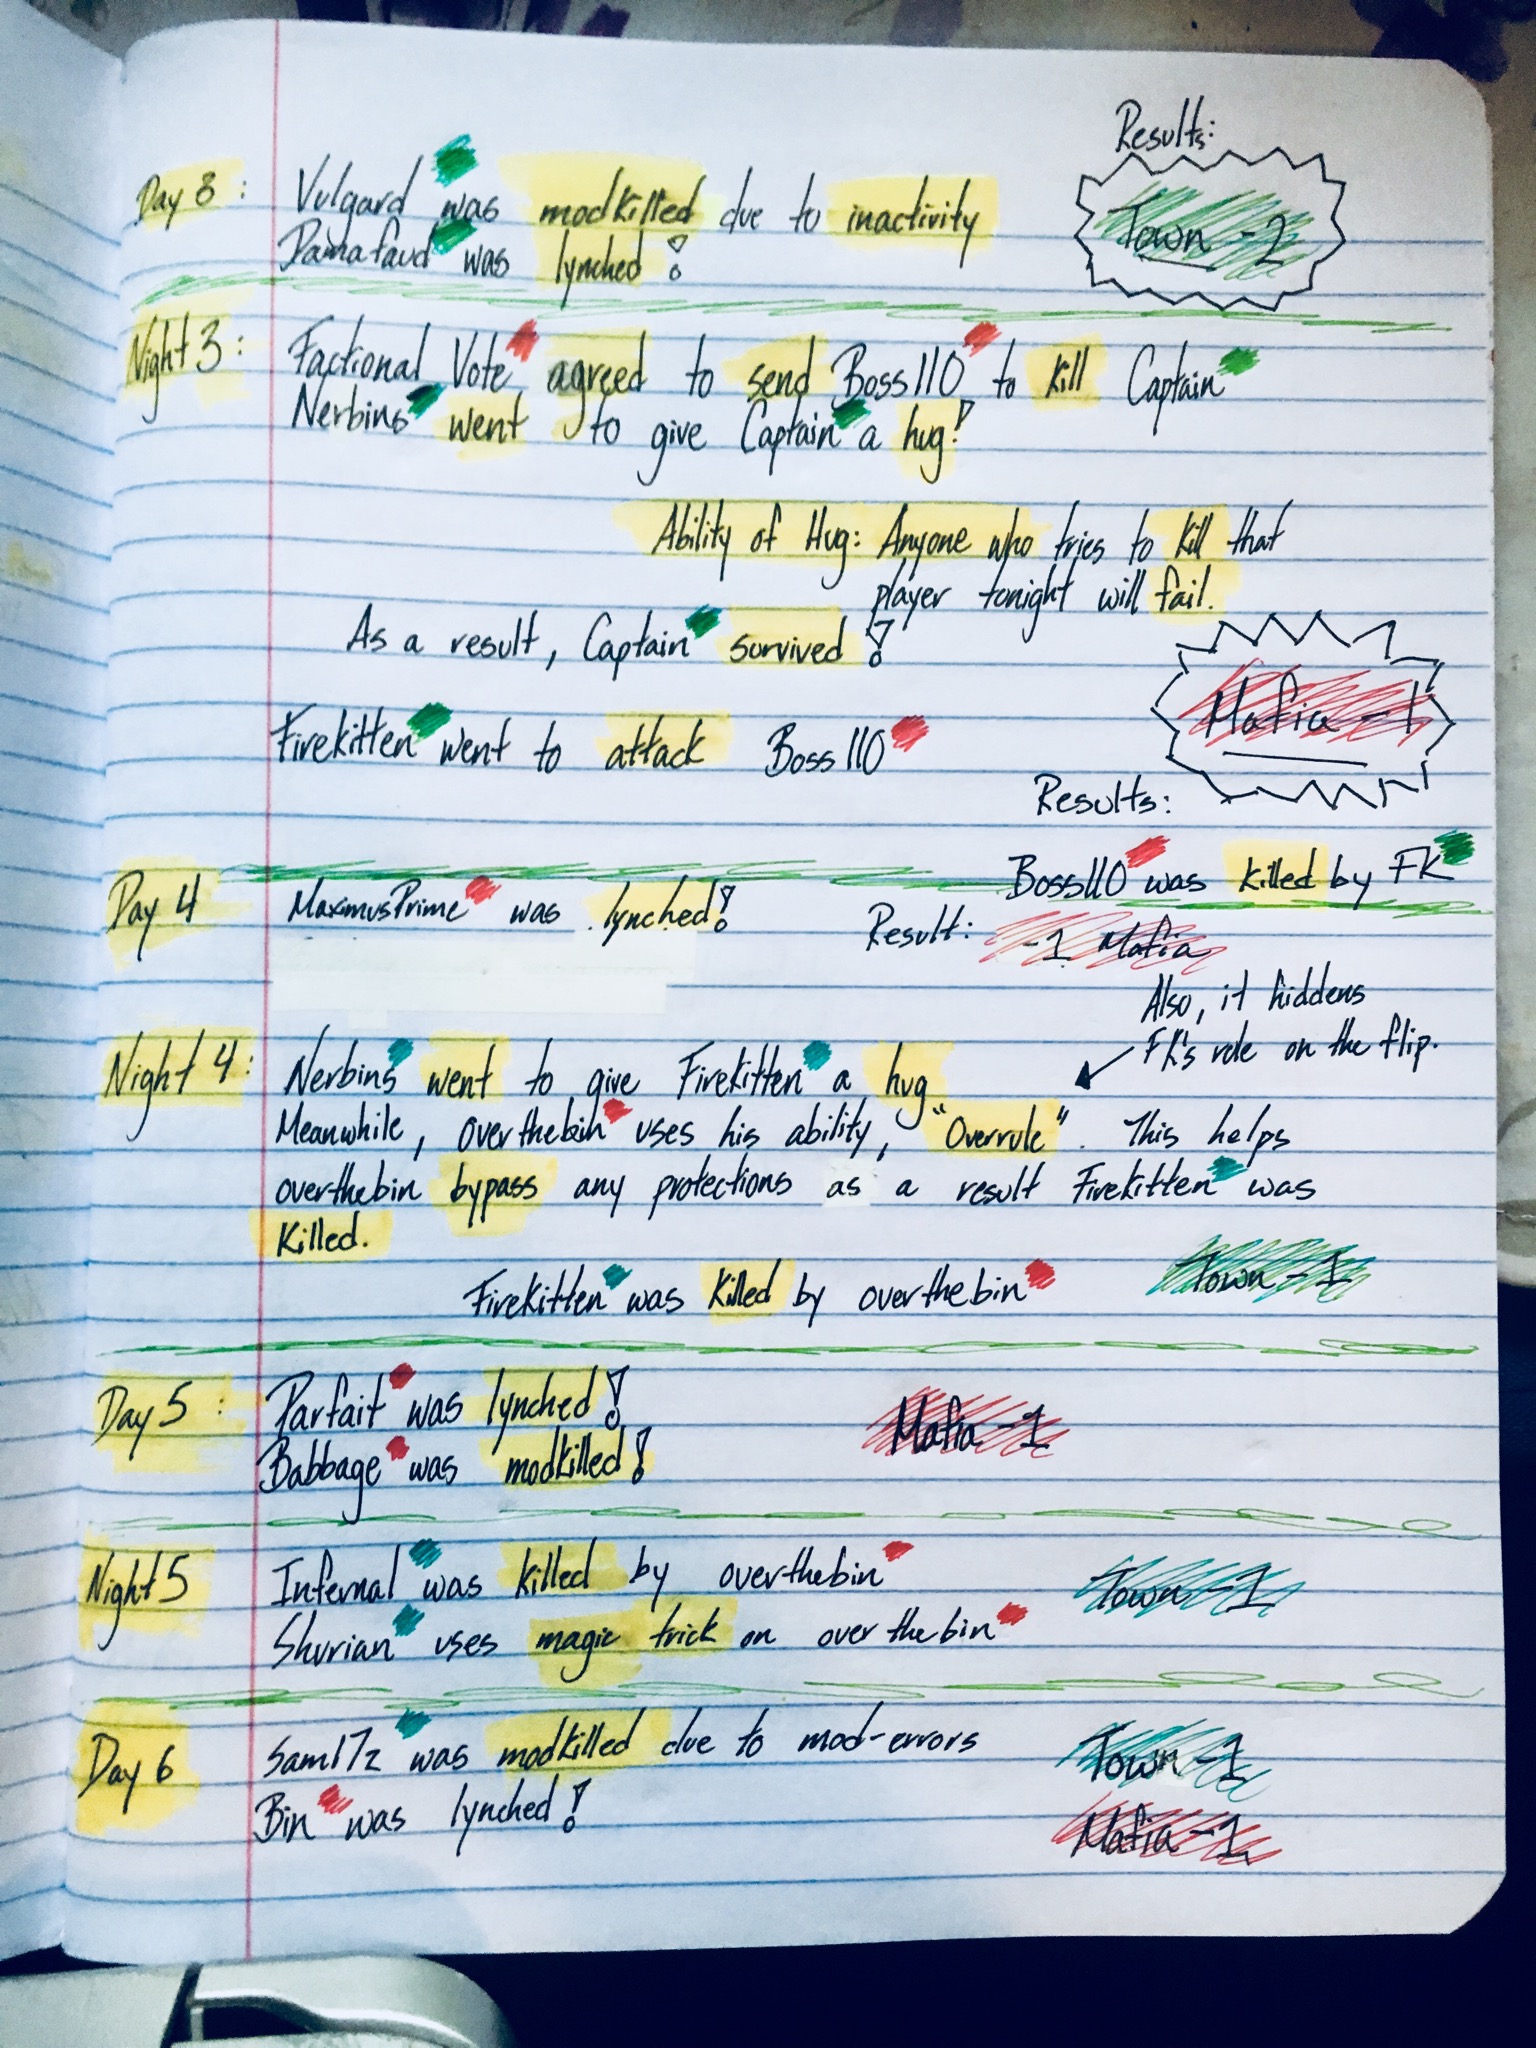 Results:
Day 3: Vulgard was modkilled due to inactivity
Town -2
was lynched!
Night 3: Factional Vote agreed to send Boss110 to kill Captain
Nerbins went to give Captain a hug!
Ability of Hug: Anyone who tries to kill that
player tonight will fail.
As a result, Captain survived!
Mafia -1
Firekitten went to attack Boss110
Results:
Boss110 was killed by FK
Day 4 MaximusPrime was lynched!
Result: -1 Mafia
Also, it hiddens
FK's role on the flip.
Night 4: Nerbins went to give Firekitten a hug
Meanwhile, overthebin uses his ability, "Overrule". This helps
overthebin bypass any protections as a result Firekitten was
Killed.
Firekitten was killed by overthebin Town -1
Day 5: Parfait was lynched! Mafia -1
Babbage was modkilled!
Night 5 Infernal was killed by overthebin Town -1
Shurian uses magic trick on overthebin
Day 6 Sam17z was modkilled due to mod-errors Town -1
Bin was lynched! Mafia -1